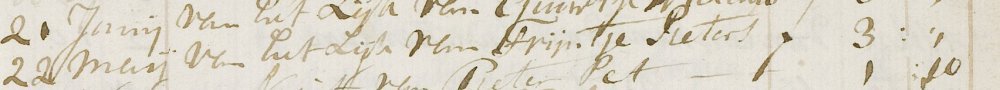 21 Junij van het Lijk van
22 Meij van het Lijk van Trijntje Pieters 3 : "
van Pieter Pet 1 : 10